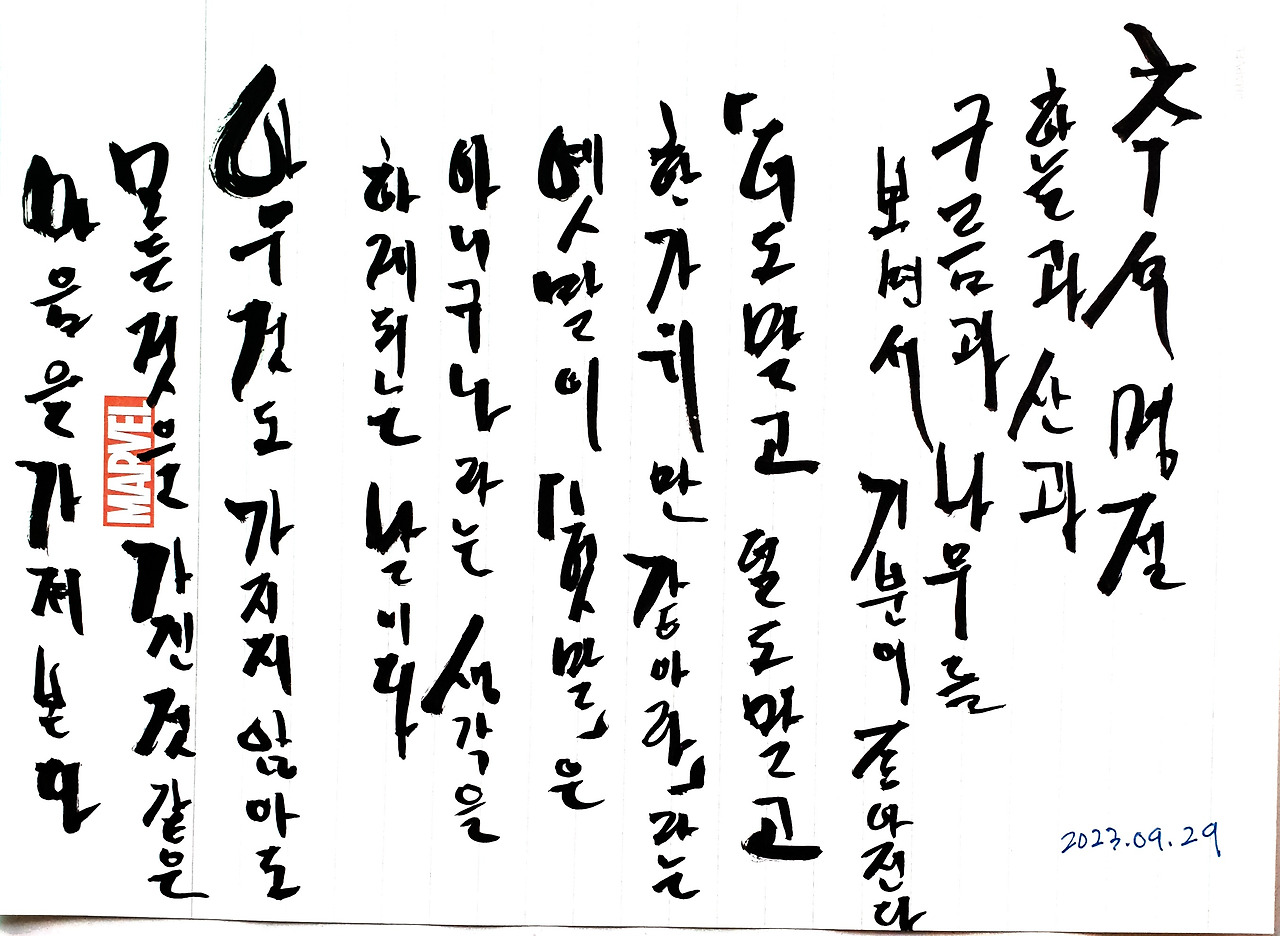 추석 명절
하늘과 산과
구름과 나무를
보면서 기분이 좋아진다
「더도 말고 덜도 말고
한가위만 같아라」라는
옛말이 「헛말」은
아니구나 라는 생각을
하게되는 날이다
아무것도 가지지 않아도
모든것을 가진것 같은
마음을 가져본다
MARVEL
2023.09.29